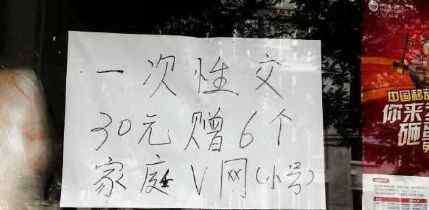 一次性交
30元赠6个
家庭V网(小号)
中国移动
你来
砸